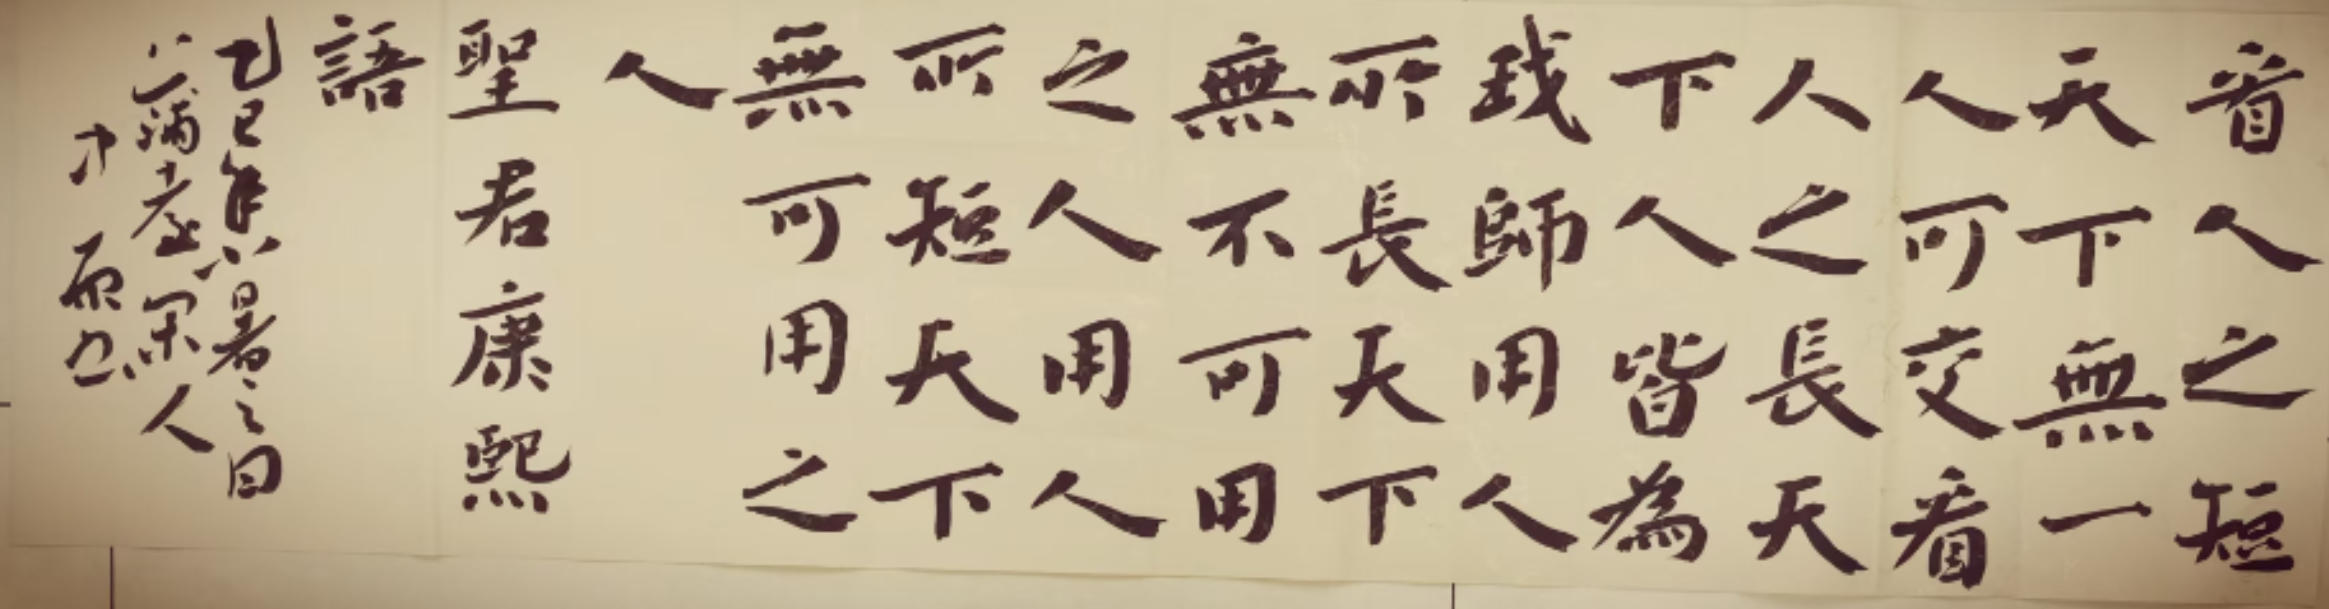 看人之短
天下無一
人可交看
人之長天
下人皆為
我師用人
所長天下
無不可用
之人用人
所短天下
無可用之
人
聖君康熙
語
乙巳年小暑之日
蒲堂閑人